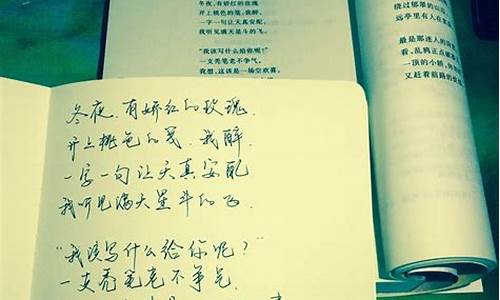 冬夜，有娇红的玫瑰
开上桃色的笺，我醉，
一字一句让天真安配，
我听见满天星斗的飞。
“我该写什么给你呢？”
一支秃笔老不争气，
我想，这该是一场空欢喜，
绕过郁翠的山
里有人在
最是那迷人的
看，乱鸦正点破
一顶的小轿，
又赶着前路的
冬夜，有娇红的玫瑰，
开上桃色的笺，我醉，
一字一句让天真安配
我听见满天星斗的飞，
“我该写什么给你呢？”
一支秃笔老不争气，